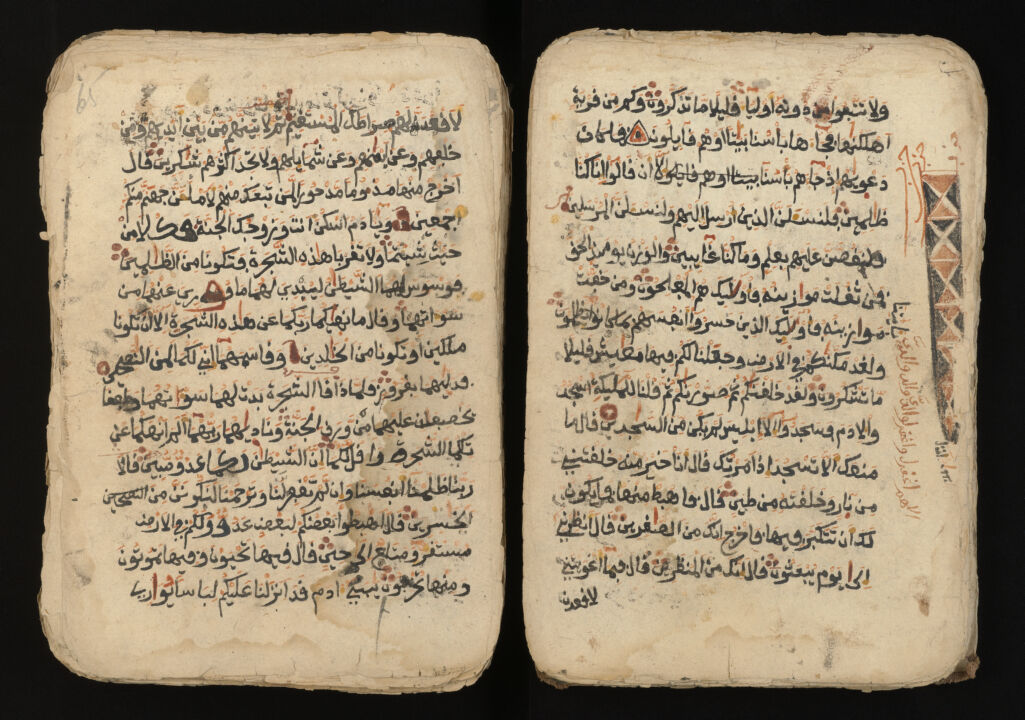 ولا تتبعوا من دونه اوليا قليلا ما تذكرون وكم من قرية
اهلكنها فجاها باسنا بيتا اوهم قايلون فما كان
دعويهم اذ جاهم باسنا بيتا اوهم قايلون الا ان قالوا انا كنا
ظلمين فلنسلن الذين ارسل اليهم ولنسلن المرسلين
فلنقصن عليهم بعلم وما كنا غايبين والوزن يومئذ الحق
فمن ثقلت موازينه فاوليك هم المفلحون ومن خفت
موازينه فاوليك الذين خسروا انفسهم بما كانوا يظلمون
ولقد مكنكم في الارض وجعلنا لكم فيها معيش قليلا
ما تشكرون ولقد خلقنكم ثم صورنكم ثم قلنا للمليكة اسجد
والادم فسجدوا الا ابليس لم يكن من السجدين قال ما
منعك الا تسجد اذ امرتك قال انا خير منه خلقتني
من نار وخلقته من طين قال فاهبط منها فما يكون
لك ان تتكبر فيها فاخرج انك من الصغرين قال انظرني
الى يوم يبعثون قال انك من المنظرين قال فبما اغويتني
لاقعدن
بايتنا
65
لاقعدن لهم صرطك المستقيم ثم لاتينهم من بين ايديهم ومن
خلفهم وعن ايمنهم وعن شمايلهم ولا تجد اكثرهم شكرين قال
اخرج منها مذوما مدحورا لمن تبعك منهم لاملن جهنم منكم
اجمعين ويادم اسكن انت وزوجك الجنة فكلا من
حيث شيتما ولا تقربا هذه الشجرة فتكونا من الظلمين
فوسوس لهما الشيطن ليبدي لهما ما وري عنهما من
سواتهما وقال ما نهيكما ربكما عن هذه الشجرة الا ان تكونا
ملكين او تكونا من الخلدين وقاسمهما اني لكما لمن النصحين
فدليهما بغرور فلما ذاقا الشجرة بدت لهما سواتهما وطفقا
يخصفان عليهما من ورق الجنة وناديهما ربهما الم انهكما عن
تلكما الشجرة واقل لكما ان الشيطن لكما عدو مبين قالا
ربنا ظلمنا انفسنا وان لم تغفر لنا وترحمنا لنكونن من
الخسرين قال اهبطوا بعضكم لبعض عدو ولكم في الارض
مستقر ومتاع الى حين قال فيها تحيون وفيها تموتون
ومنها تخرجون يبني ادم قد انزلنا عليكم لباسا يواري